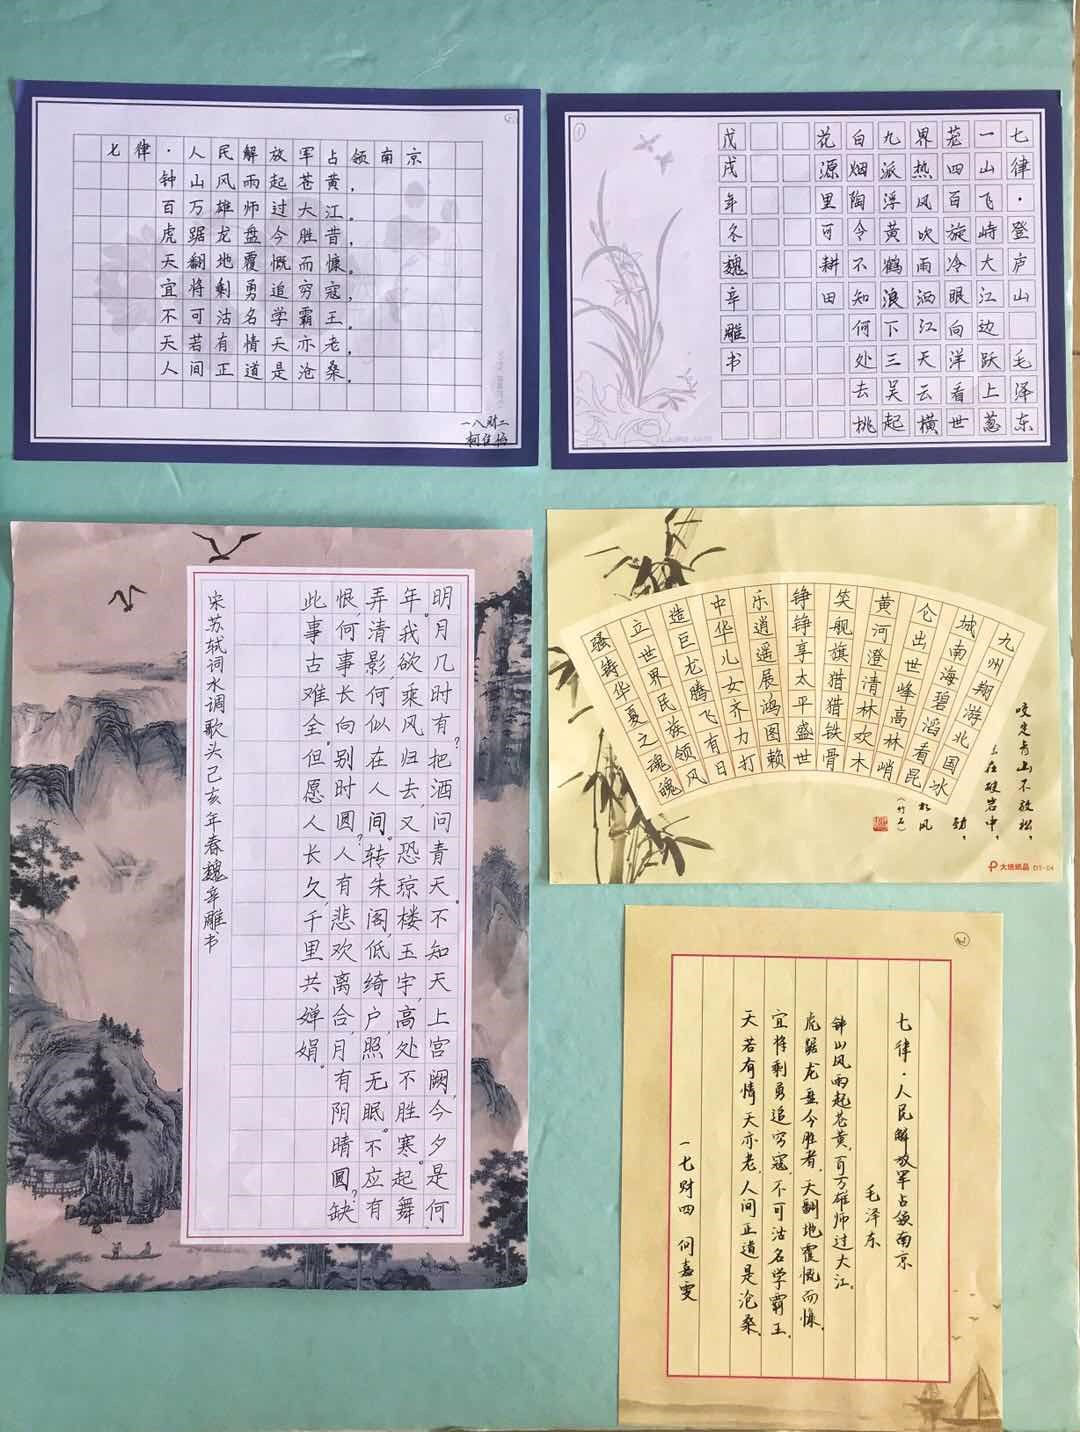 七律·人民解放军占领南京
钟山风雨起苍黄,
百万雄师过大江.
虎踞龙盘今胜昔,
天翻地覆慨而慷.
宜将剩勇追穷寇,
不可沽名学霸王.
天若有情天亦老,
人间正道是沧桑.
一八财二
柯佳怡
七律·登庐山 毛泽东
一山飞峙大江边跃上葱
茏四百旋冷眼向洋看世
界热风吹雨洒江天云横
九派浮黄鹤浪下三吴起
白烟陶令不知何处去桃
花源里可耕田
戊戌年冬魏辛雕书
明月几时有?把酒问青天。不知天上宫阙,今夕是何
年。我欲乘风归去,又恐琼楼玉宇,高处不胜寒。起舞
弄清影,何似在人间。转朱阁,低绮户,照无眠。不应有
恨,何事长向别时圆?人有悲欢离合,月有阴晴圆缺?
此事古难全。但愿人长久,千里共婵娟。
宋苏轼词水调歌头己亥年春魏辛雕书
九州翔游北国冰
城南海碧滔看昆
仑出世峰高林峭
黄河澄清林欢木
笑舰旗猎猎铁骨
铮铮享太平盛世
乐逍遥展鸿图赖
中华儿女齐力打
造巨龙腾飞有日
立世界民族领风
骚铸华夏之魂魄
咬定青山不放松,
在破岩中,
劲,
风
(竹石)
大德纸品 DY-04
七律·人民解放军占领南京
毛泽东
钟山风雨起苍黄,百万雄师过大江.
虎踞龙盘今胜者,天翻地覆慨而慷.
宜将剩勇追穷寇,不可沽名学霸王.
天若有情天亦老,人间正道是沧桑.
一七财四 何嘉雯